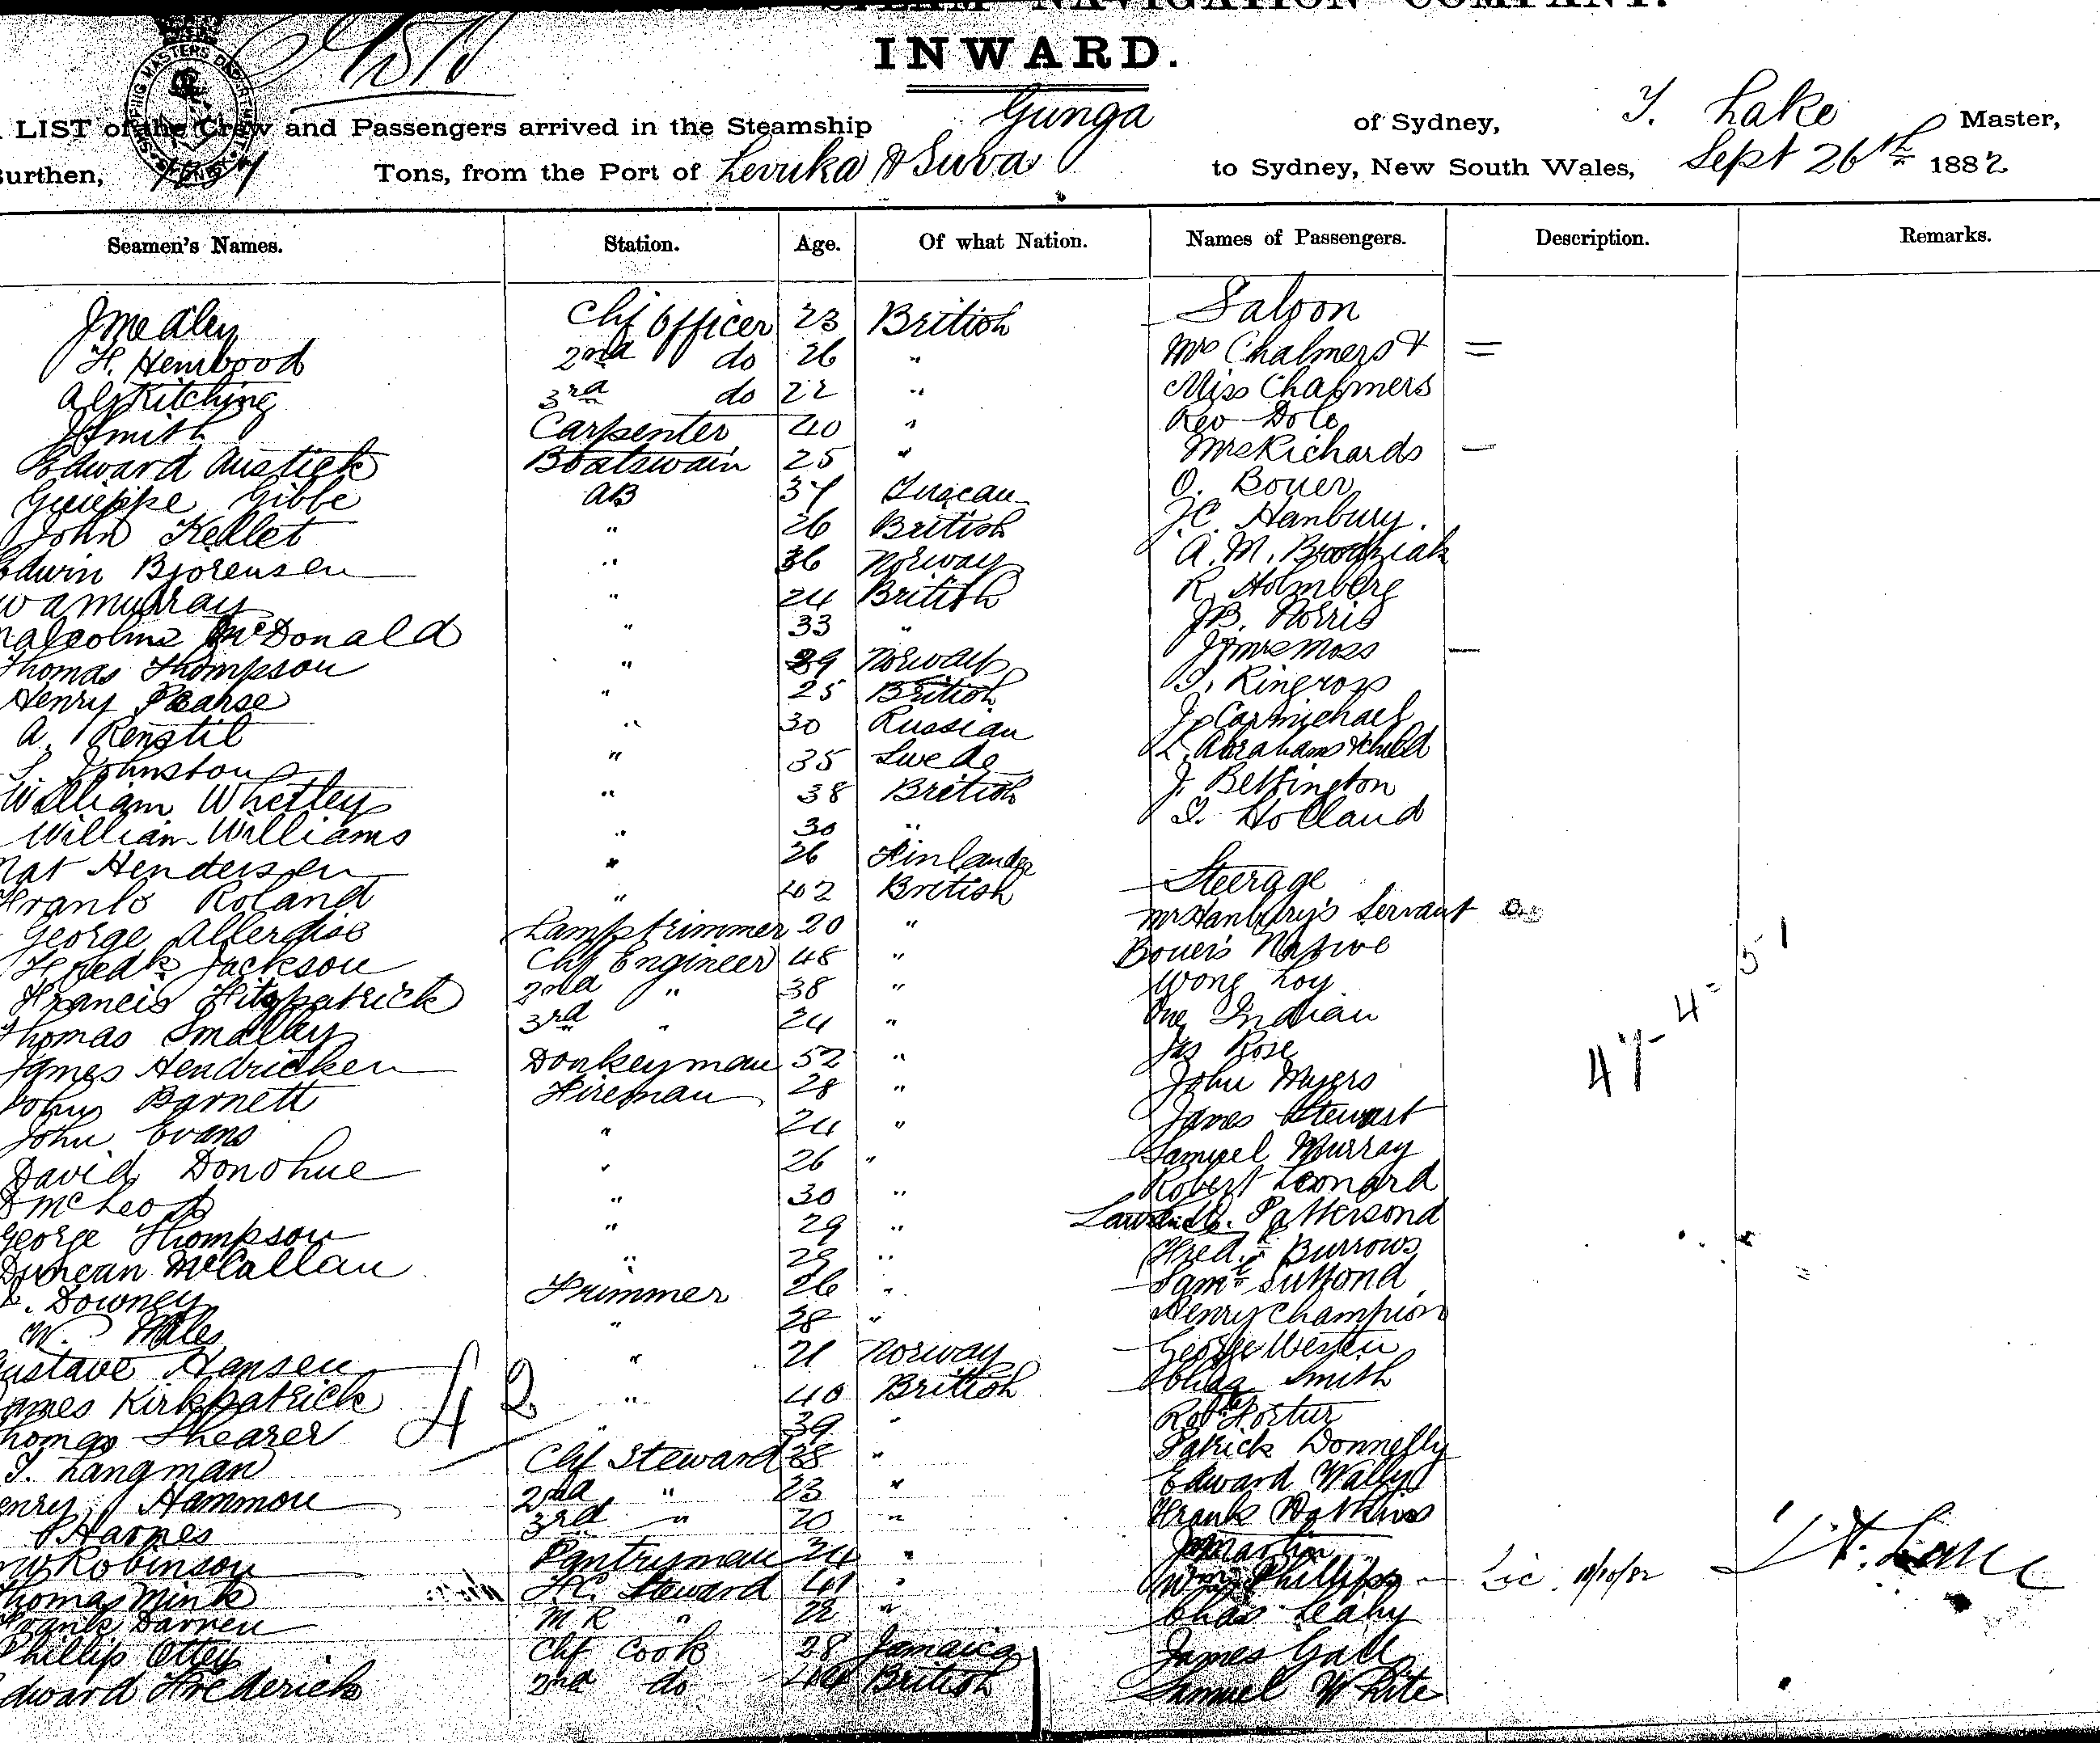 STEAM NAVIGATION COMPANY.
INWARD.
LIST of the Crew and Passengers arrived in the Steamship Gunga of Sydney, T. Lake Master,
Burthen, Tons, from the Port of Levuka & Suva to Sydney, New South Wales, Sept 26th 1882
Seamen's Names. Station. Age. Of what Nation. Names of Passengers. Description. Remarks.
Saloon
Chf Officer 23 British
H. Henwood 2nd do 26 " Mrs Chalmers & =
A G Kitching 3rd do 22 " Miss Chalmers
J Smith Carpenter 40 " Rev Dole
Edward Austick Boatswain 25 " Mrs Richards —
Guieppe Gibbe AB 37 O. Bouer
John Kellet " 26 British J.C. Hanbury.
Edwin Bjorensen " 36 Norway A. M. Brodziak
W A Murray " 24 British R. Holmberg
Malcolm McDonald " 33 " J.B. Norris
Thomas Thompson " 29 Norway J Mrs Moss —
Henry Pearse " 25 British T. Ringross
A. Renstil " 30 Russian J. Carmichael
S. Johnston " 35 Swede L. Abrahams & child
William Whetley " 38 British J. Bettington
William Williams " 30 " T. Holland
Mat Hendersen " 26 Finlander Steerage
Frank Roland " 42 British Mr Hanbury's Servant
George Allerdise Lamptrimmer 20 " Bouer's Native
Fredk Jackson Chf Engineer 48 " Wong Loy
Francis Fitzpatrick 2nd " 38 " One Indian
Thomas Smalley 3rd " 24 " Jas Rose
James Hendricken Donkeyman 52 " John Myers
John Barnett Fireman 28 " James Stewart
John Evans " 24 " Samuel Murray
David Donohue " 26 " Robert Leonard
D McLeod " 30 " Lawrence Pattersond
George Thompson " 29 " Fredk Burrows
Duncan McCallan " 29 " Saml Suttond
Downey Trimmer 26 " Henry Champion
W. Miles " 28 " George Westen
Gustave Hansen " 21 Norway Chas Smith
James Kirkpatrick " 40 British Robt Forster
Thomas Shearer " 39 " Patrick Donnelly
T. Langman Chf Steward 28 " Edward Wally
Henry Hammon 2nd " 23 " Frank Watkins
Harnes 3rd " 20 " J Martin
Robinson Pantryman 24 " Wm Phillips — Lic. 11/10/82
Thomas Mink F.C. Steward 41 " Chas Leahy
Frank Darren M R " 22 " James Gall
Phillip Ottey Chf Cook 28 Jamaica Samuel White
Edward Frederick 2nd do 44 British
42
47-4=51